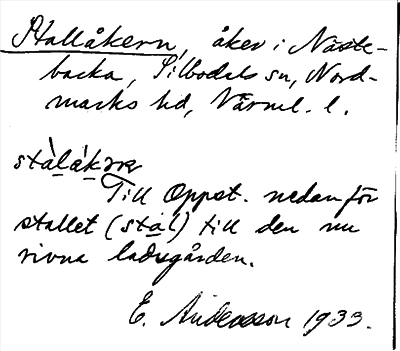 Stallåkern, åker i Näste-
backa, Silbodals sn, Nord-
marks hd, Värml. l.
stàlákɷr
Till Oppst. nedanför
stallet (stal) till den nu
rivna ladugården.
E. Andersson 1933.